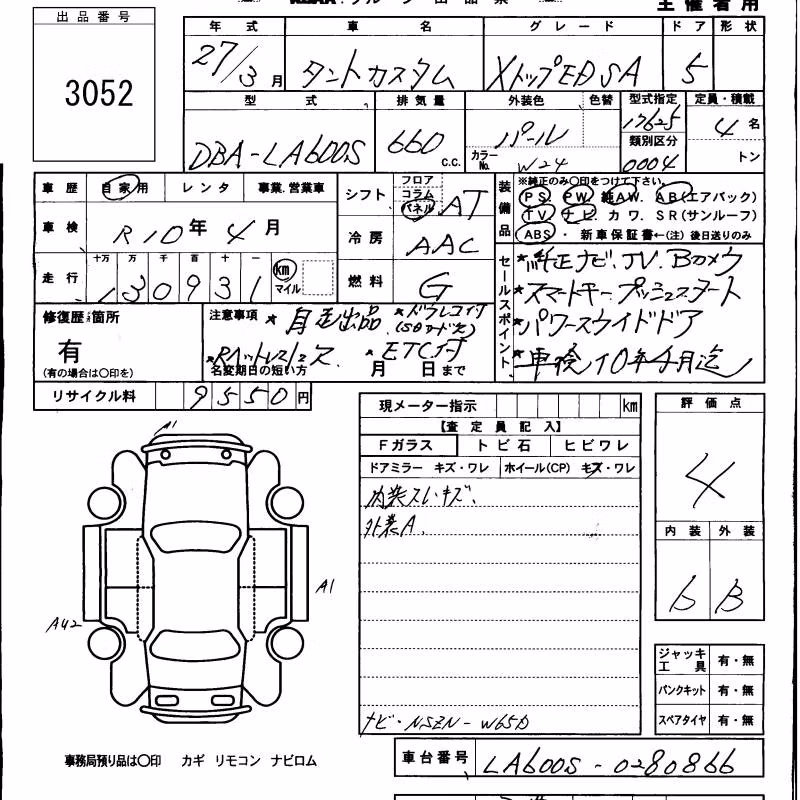 主催者用
出品番号
3052
年式 車名 グレード ドア 形状
27/3月 タントカスタム XトップED SA 5
型式 排気量 外装色 色替 型式指定 定員・積載
DBA-LA600S 660 c.c. パール 17625 4名
カラーNo. W24 類別区分 0004 トン
車歴 自家用 レンタ 事業.営業車
車検 R10年4月
走行 十万 万 千 百 十 一 km マイル
130931
シフト フロア コラム パネル AT
冷房 AAC
燃料 G
装備品 ※純正のみ〇印をつけて下さい。
PS. PW. 純AW. AB(エアバック)
TV. ナビ. カワ. SR(サンルーフ)
ABS・新車保証書←(注)後日送りのみ
セールスポイント
★純正ナビ.TV.Bカメラ
★スマートキー.プッシュスタート
★パワースライドドア
★車検10年4月迄
修復歴・箇所
有
(有の場合は〇印を)
注意事項 ★自走出品 ★ドラレコ付
(SDカード欠)
★ETC付
名変期日の短い方 月 日まで
リサイクル料 9550円
現メーター指示 km
【査定員記入】
Fガラス トビ石 ヒビワレ
ドアミラー キズ・ワレ ホイール(CP) キズ・ワレ
内装スレキズ、
外装A.
ナビ・NSZN-W65D
評価点
4
内装 外装
b B
ジャッキ工具 有・無
パンクキット 有・無
スペアタイヤ 有・無
A1
A1
A42
事務局預り品は〇印 カギ リモコン ナビロム
車台番号 LA600S-0280866